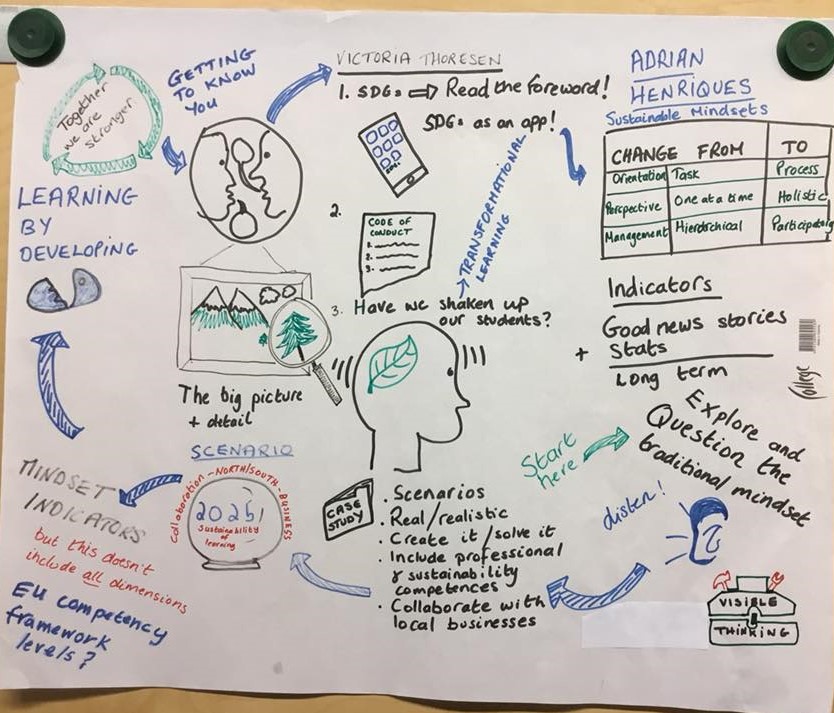 Together
we are
stronger
GETTING
TO KNOW
YOU
LEARNING
BY
DEVELOPING
VICTORIA THORESEN
1. SDGs ⇒ Read the foreword!
SDGs as an app!
TRANSFORMATIONAL
LEARNING
2.
CODE OF
CONDUCT
1.
2.
3.
3. Have we shaken up
our students?
ADRIAN
HENRIQUES
Sustainable Mindsets
CHANGE FROM TO
Orientation Task Process
Perspective One at a time Holistic
Management Hierarchical Participatory
Indicators
Good news stories
+ Stats
Long term
College
The big picture
+ detail
Start
here
Explore and
Question the
traditional mindset
listen!
VISIBLE
THINKING
CASE
STUDY
. Scenarios
. Real/realistic
. Create it/solve it
. Include professional
& sustainability
competences
. Collaborate with
local businesses
SCENARIO
Collaboration - NORTH/SOUTH - BUSINESS
2025!
Sustainability
of
learning
MINDSET
INDICATORS
but this doesn't
include all dimensions
EU competency
framework
levels?